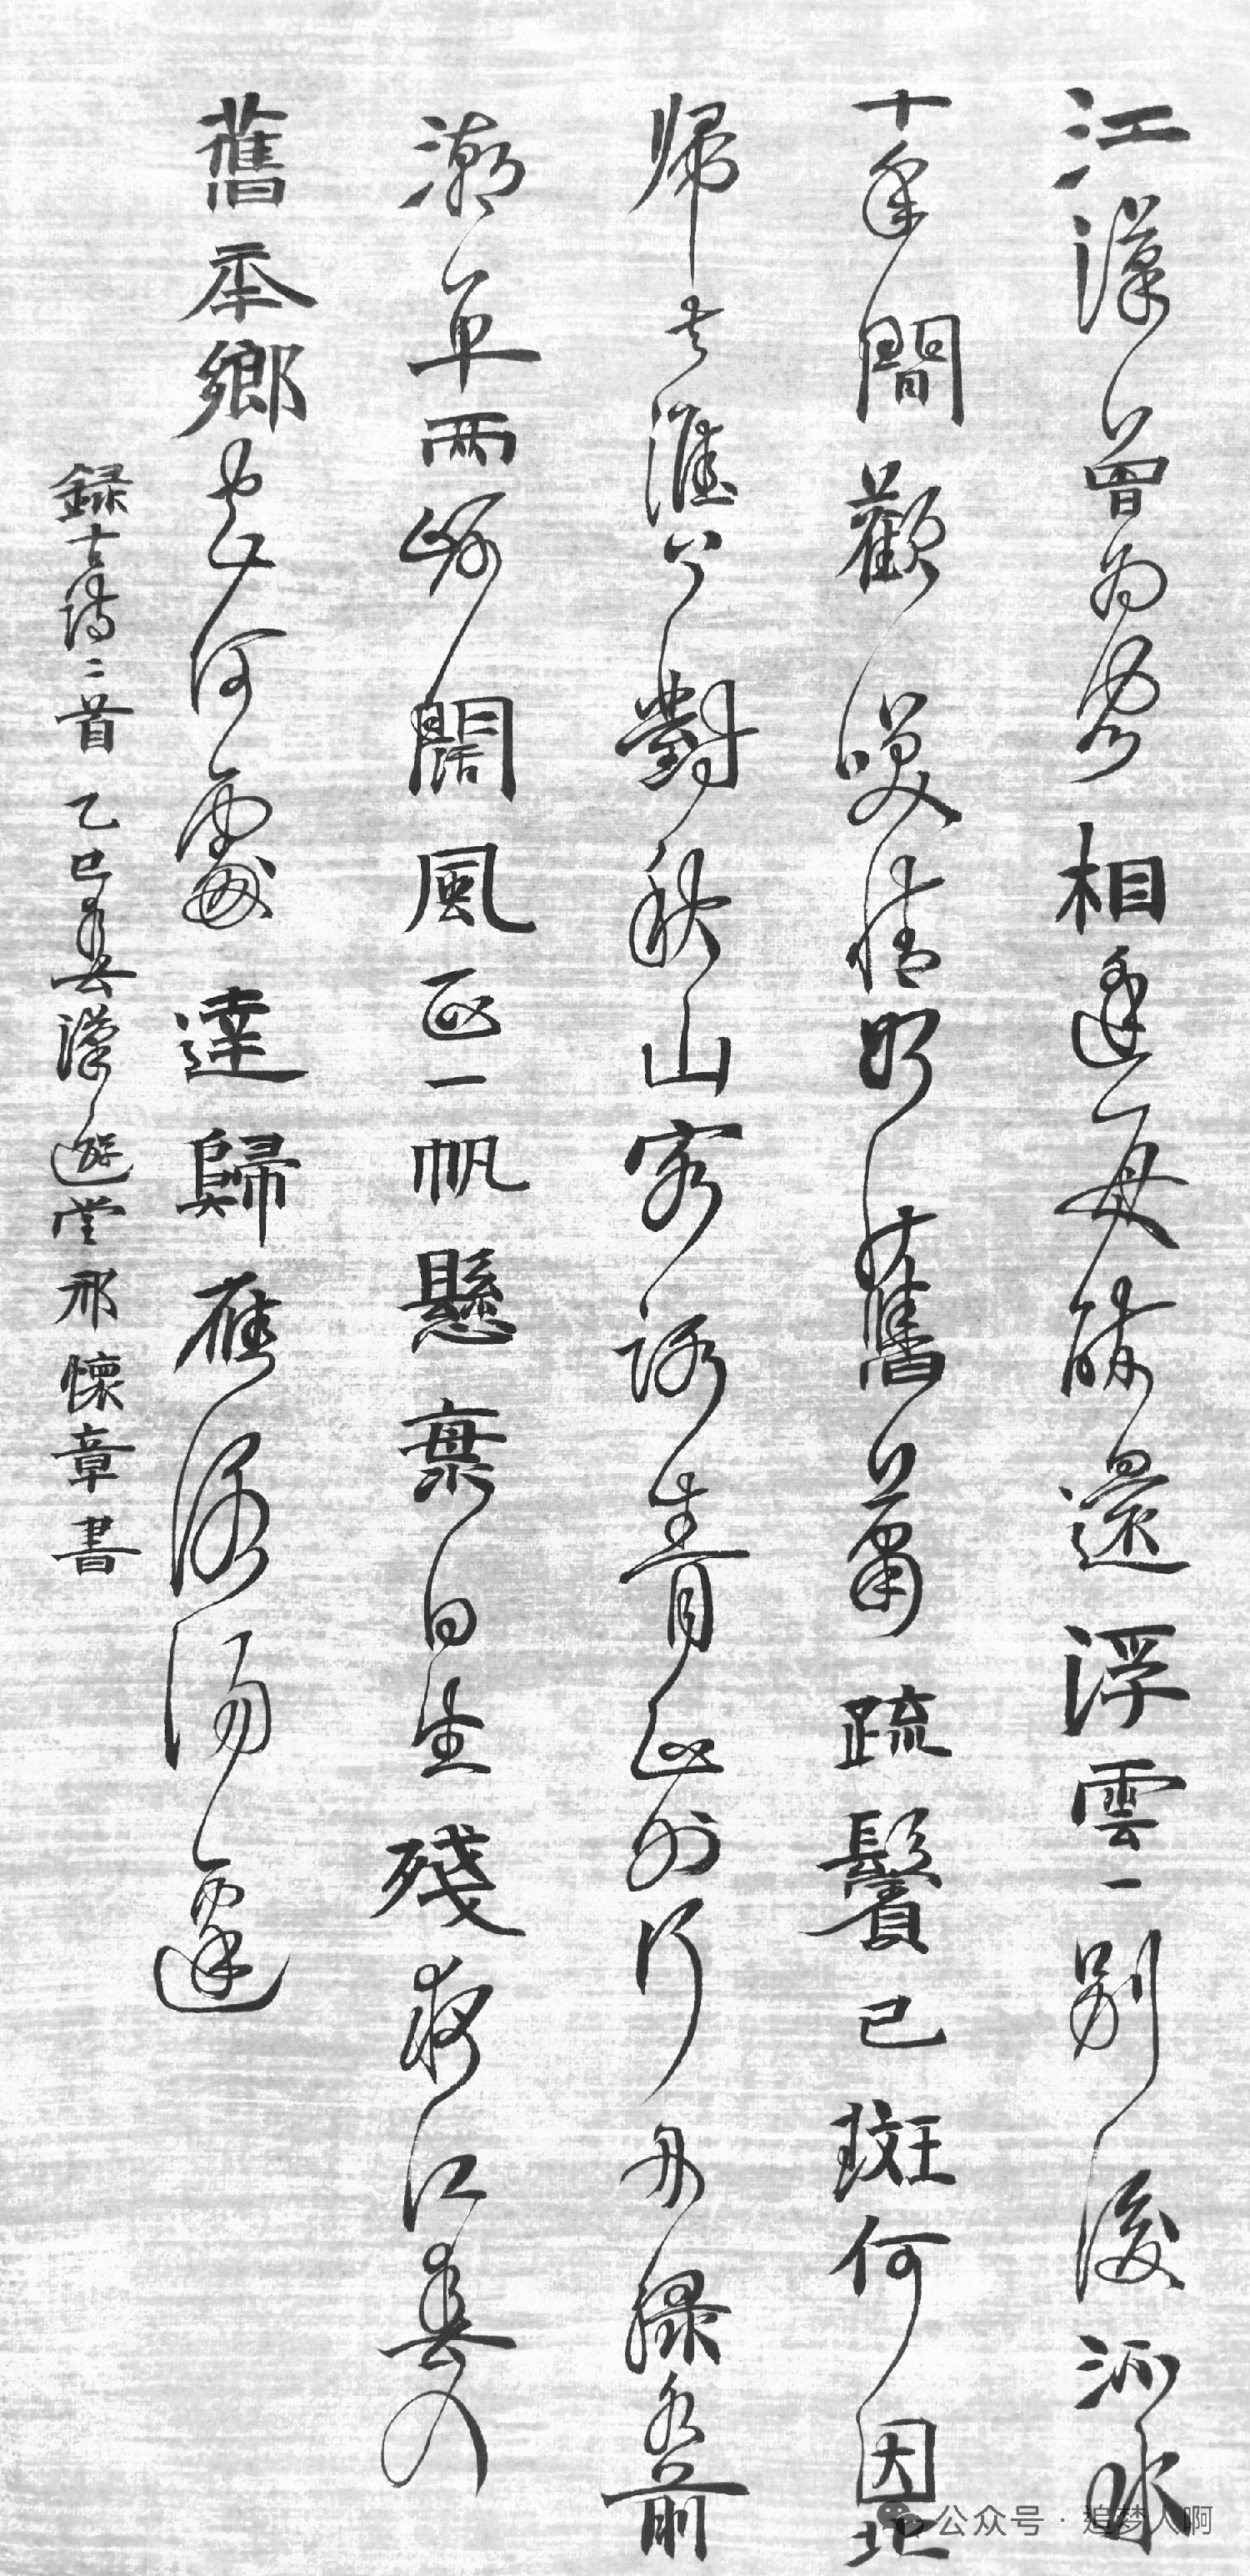 江漢曾為客相逢每醉還浮雲一别後流水
十年間歡笑情如舊蕭疏鬢已斑何因北
帰去淮上對秋山客路青山外行舟綠水前
潮平兩岸闊風正一帆懸海日生殘夜江春入
舊年鄉書何處達歸雁洛陽邊
録古詩二首 乙巳春漢遊堂邢懷章書
公众号 · 追梦人啊